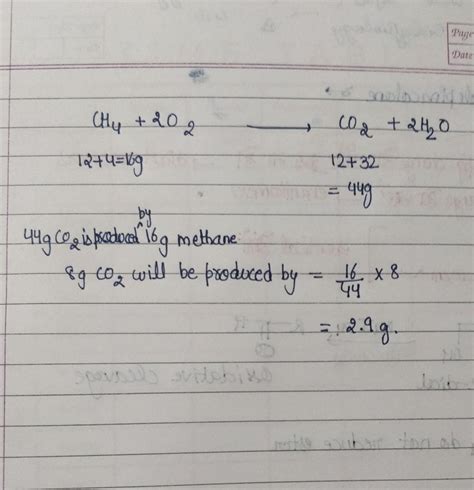 Page
Date
CH4 + 2O2 ⟶ CO2 + 2H2O
12+4=16g 12+32
= 44g
by
44g CO2 is produced ^ 16g methane
8g CO2 will be produced by = 16/44 × 8
= 2.9 g.